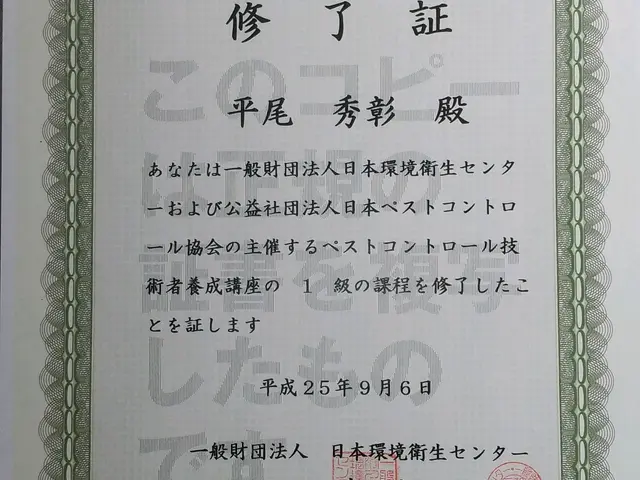 修了証
平尾 秀彰 殿
あなたは一般財団法人日本環境衛生センタ
ーおよび公益社団法人日本ペストコントロ
ール協会の主催するペストコントロール技
術者養成講座の 1 級の課程を修了したこ
とを証します
平成25年9月6日
一般財団法人 日本環境衛生センター
このコピー
は正規の
証書を複写
したもの
です